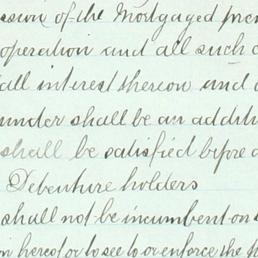 ession of the Mortgaged prem
operation and all such c
all interest thereon and
under shall be an additi
shall be satisfied before
Debenture holders
shall not be incumbent on
hereof or to see to or enforce the